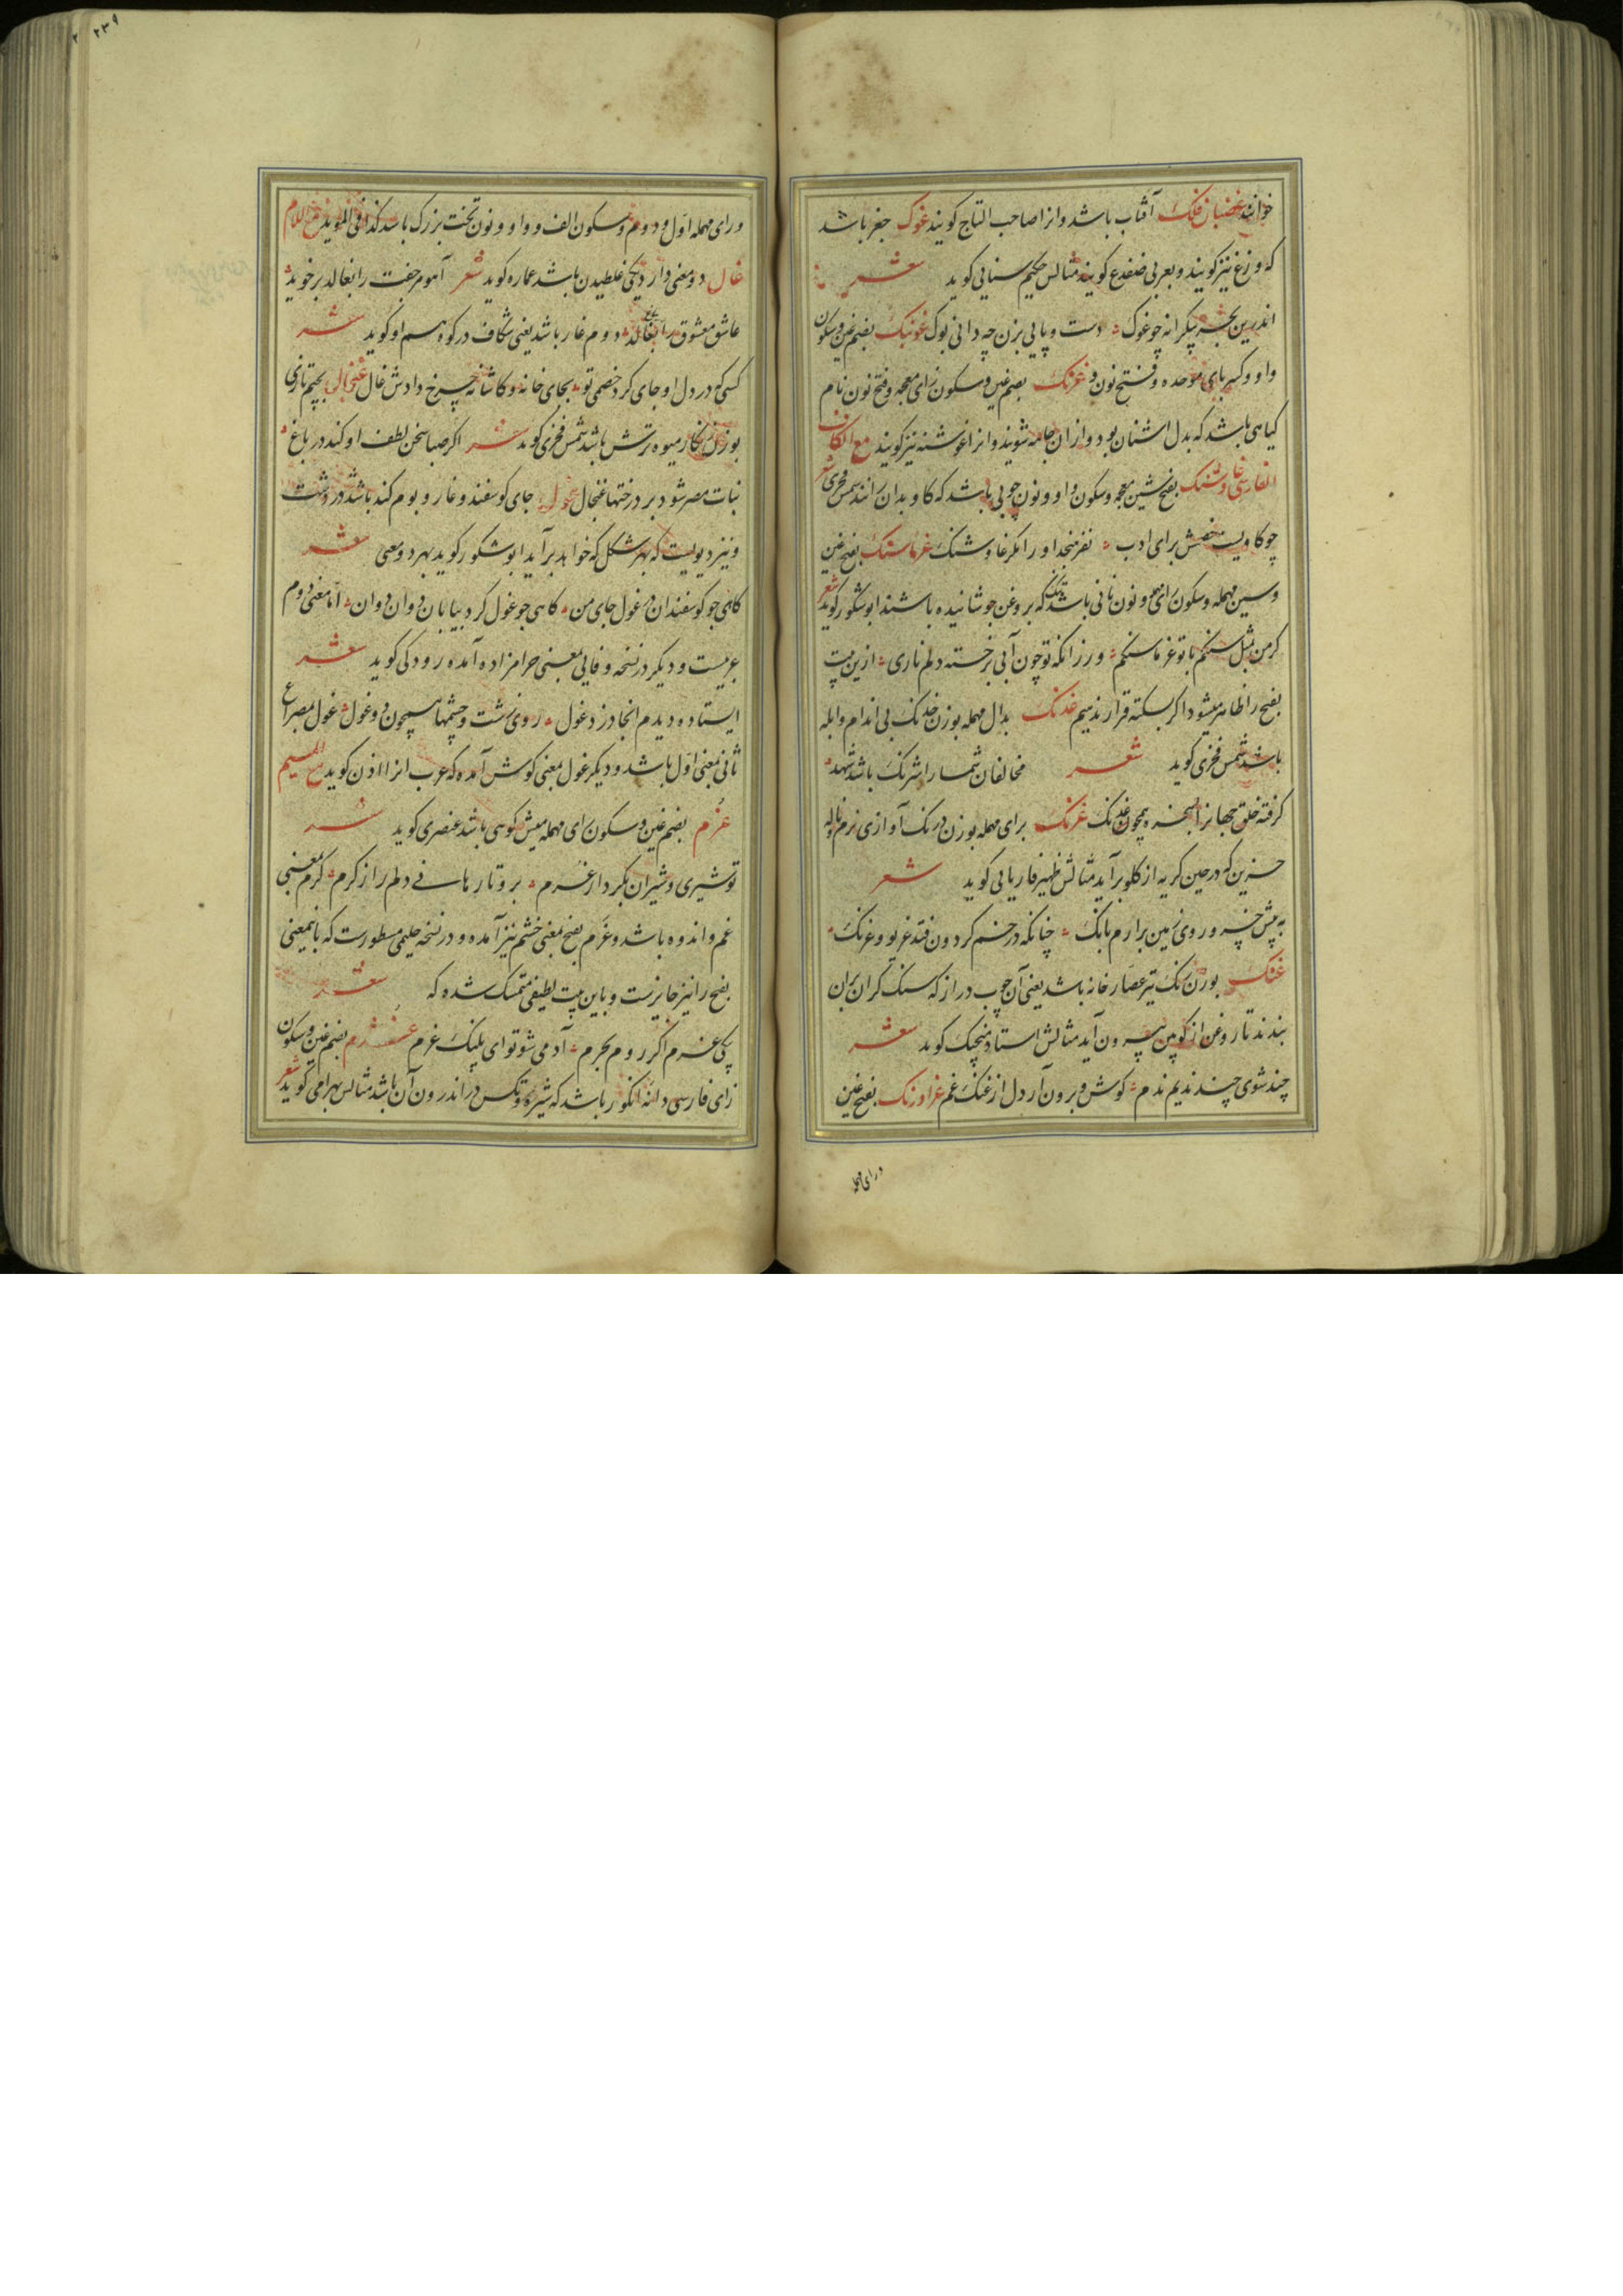 خوانند غضبان فلک آفتاب باشد وانرا صاحب التاج کویند غوک جغز باشد
که وزغ نیز کویند وبعربی ضفدع کویند مثالش حکیم سنایی کوید شعر
اندرین بحر بیکرانه چو غوک دست و پایی بزن چه دانی بوک غونبک بضم غین وسکون
واو وکسر بای موحده وفتح نون و غزنک بضم غین وسکون زای معجمه وفتح نون نام
کیاهی باشد که بدل اشنان بود وازان جامه شویند وانرا غوشنه نیز کویند مع الکاف
الفارسی غاوشنک بفتح شین معجمه وسکون واو ونون چوبی باشد که کاو بدان رانند شمس فخری شعر
چو کاویست خصمش برای ادب نفرمنجد اورا مکر غاوشنک غرماسنک بفتح غین
وسین مهمله وسکون رای مهمله ونون نانی باشد تنک که بروغن جوشانیده باشند ابوشکور کوید شعر
کرمن بمثل سنکم با تو غرماسنکم ورزانکه تو چون آبی برخسته دلم ناری ازین بیت
بفتح را ظاهر میشود اکر بسکته قرار ندهیم غدنک بدال مهمله بوزن خدنک بی اندام وابله
باشد شمس فخری کوید شعر مخالفان شما را شرنک باشد شهد
کرفته خلق جهانرا بسخره همچون غدنک غرنک برای مهمله بوزن درنک آوازی نرم وناله
حزین که درحین کریه از کلو برآید مثالش ظهیر فاریابی کوید شعر
به پیش خنجر و روی زمین برارم بانک چنانکه در خم کردون فتد غریو و غرنک
غنک بوزن رنک تیر عصار خانه باشد یعنی آن چوب دراز که سنک کران بران
بندند تا روغن از کوپین بیرون آید مثالش استاد منجیک کوید شعر
چند شوی چند ندیم ندم کوش و برون آر دل از غنک غم غراورنک بفتح غین
ورای مهمله
ورای مهمله اول ودوم وسکون الف وواو ونون تخت بزرک باشد کذا فی المؤید مع اللام
غال دو معنی دارد یکی غلطیدن باشد عماره کوید شعر آهو مر جفت را بغالد بر خوید
عاشق معشوق را بغالد دوم غار باشد یعنی شکاف در کوه هم او کوید شعر
کسی که در دل او جای کرد خصمی تو بجای خانه وکاشانه چرخ دادش غال غنجال بجیم تازی
بوزن زنکار میوه ترش باشد شمس فخری کوید شعر اکر صبا سخن لطف او کند در باغ
نبات مصر شود بر درختها غنجال غول جای کوسفند وغار وبوم کند باشد در دشت
ونیز دیویست که بهر شکل که خواهد برآید ابوشکور کوید بهر دو معنی شعر
کاهی چو کوسفندان در غول جای من کاهی چو غول کرد بیابان دوان دوان اما معنی دوم
عربیست ودیکر در نسخه وفایی بمعنی حرامزاده آمده رودکی کوید شعر
ایستاده دیدم آنجا دزد غول روی زشت وچشمها همچون دو غول غول مصراع
ثانی بمعنی اول باشد ودیکر غول بمعنی کوش آمده که عرب انرا اذن کوید مع المیم
غرم بضم غین وسکون رای مهمله میش کوهی باشد عنصری کوید شعر
تو شیری وشیران بکردار غرم برو تا رهانی دلم را ز کرم کرم بمعنی
غم واندوه باشد وغرم بفتح بمعنی خشم نیز آمده ودر نسخه حلیمی مسطورست که باینمعنی
بفتح را نیز جایزست وباین بیت لطیفی متمسک شده که شعر
یکی غرم اکر روم بجرم آدمی شو تو ای پلنک غرم غژم بضم غین وسکون
زای فارسی دانه انکور باشد که شیره وتکس در اندرون آن باشد مثالش بهرامی کوید شعر
۲۳۹